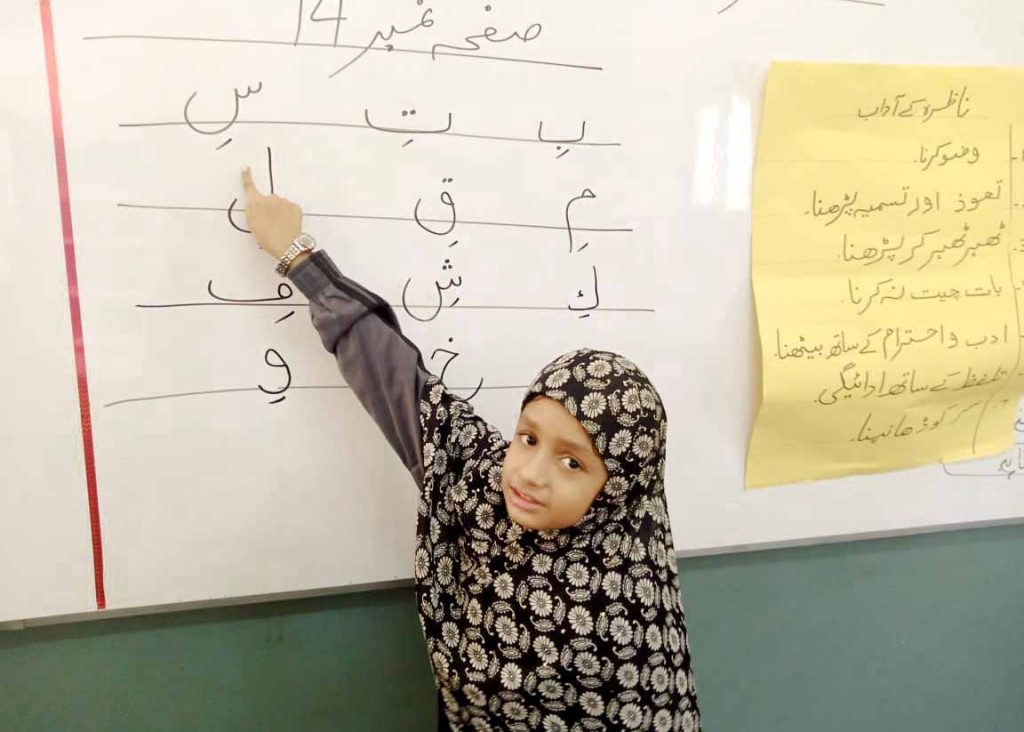 صفحہ نمبر 14
بِ تِ سِ
مِ قِ ل
كِ شِ فِ
خ وِ
ناظرہ کے آداب
وضو کرنا۔
تعوذ اور تسمیہ پڑھنا۔
ٹھہر ٹھہر کر پڑھنا۔
بات چیت نہ کرنا۔
ادب و احترام کے ساتھ بیٹھنا۔
تلفظ کے ساتھ ادائیگی۔
سر کو ڈھانپنا۔